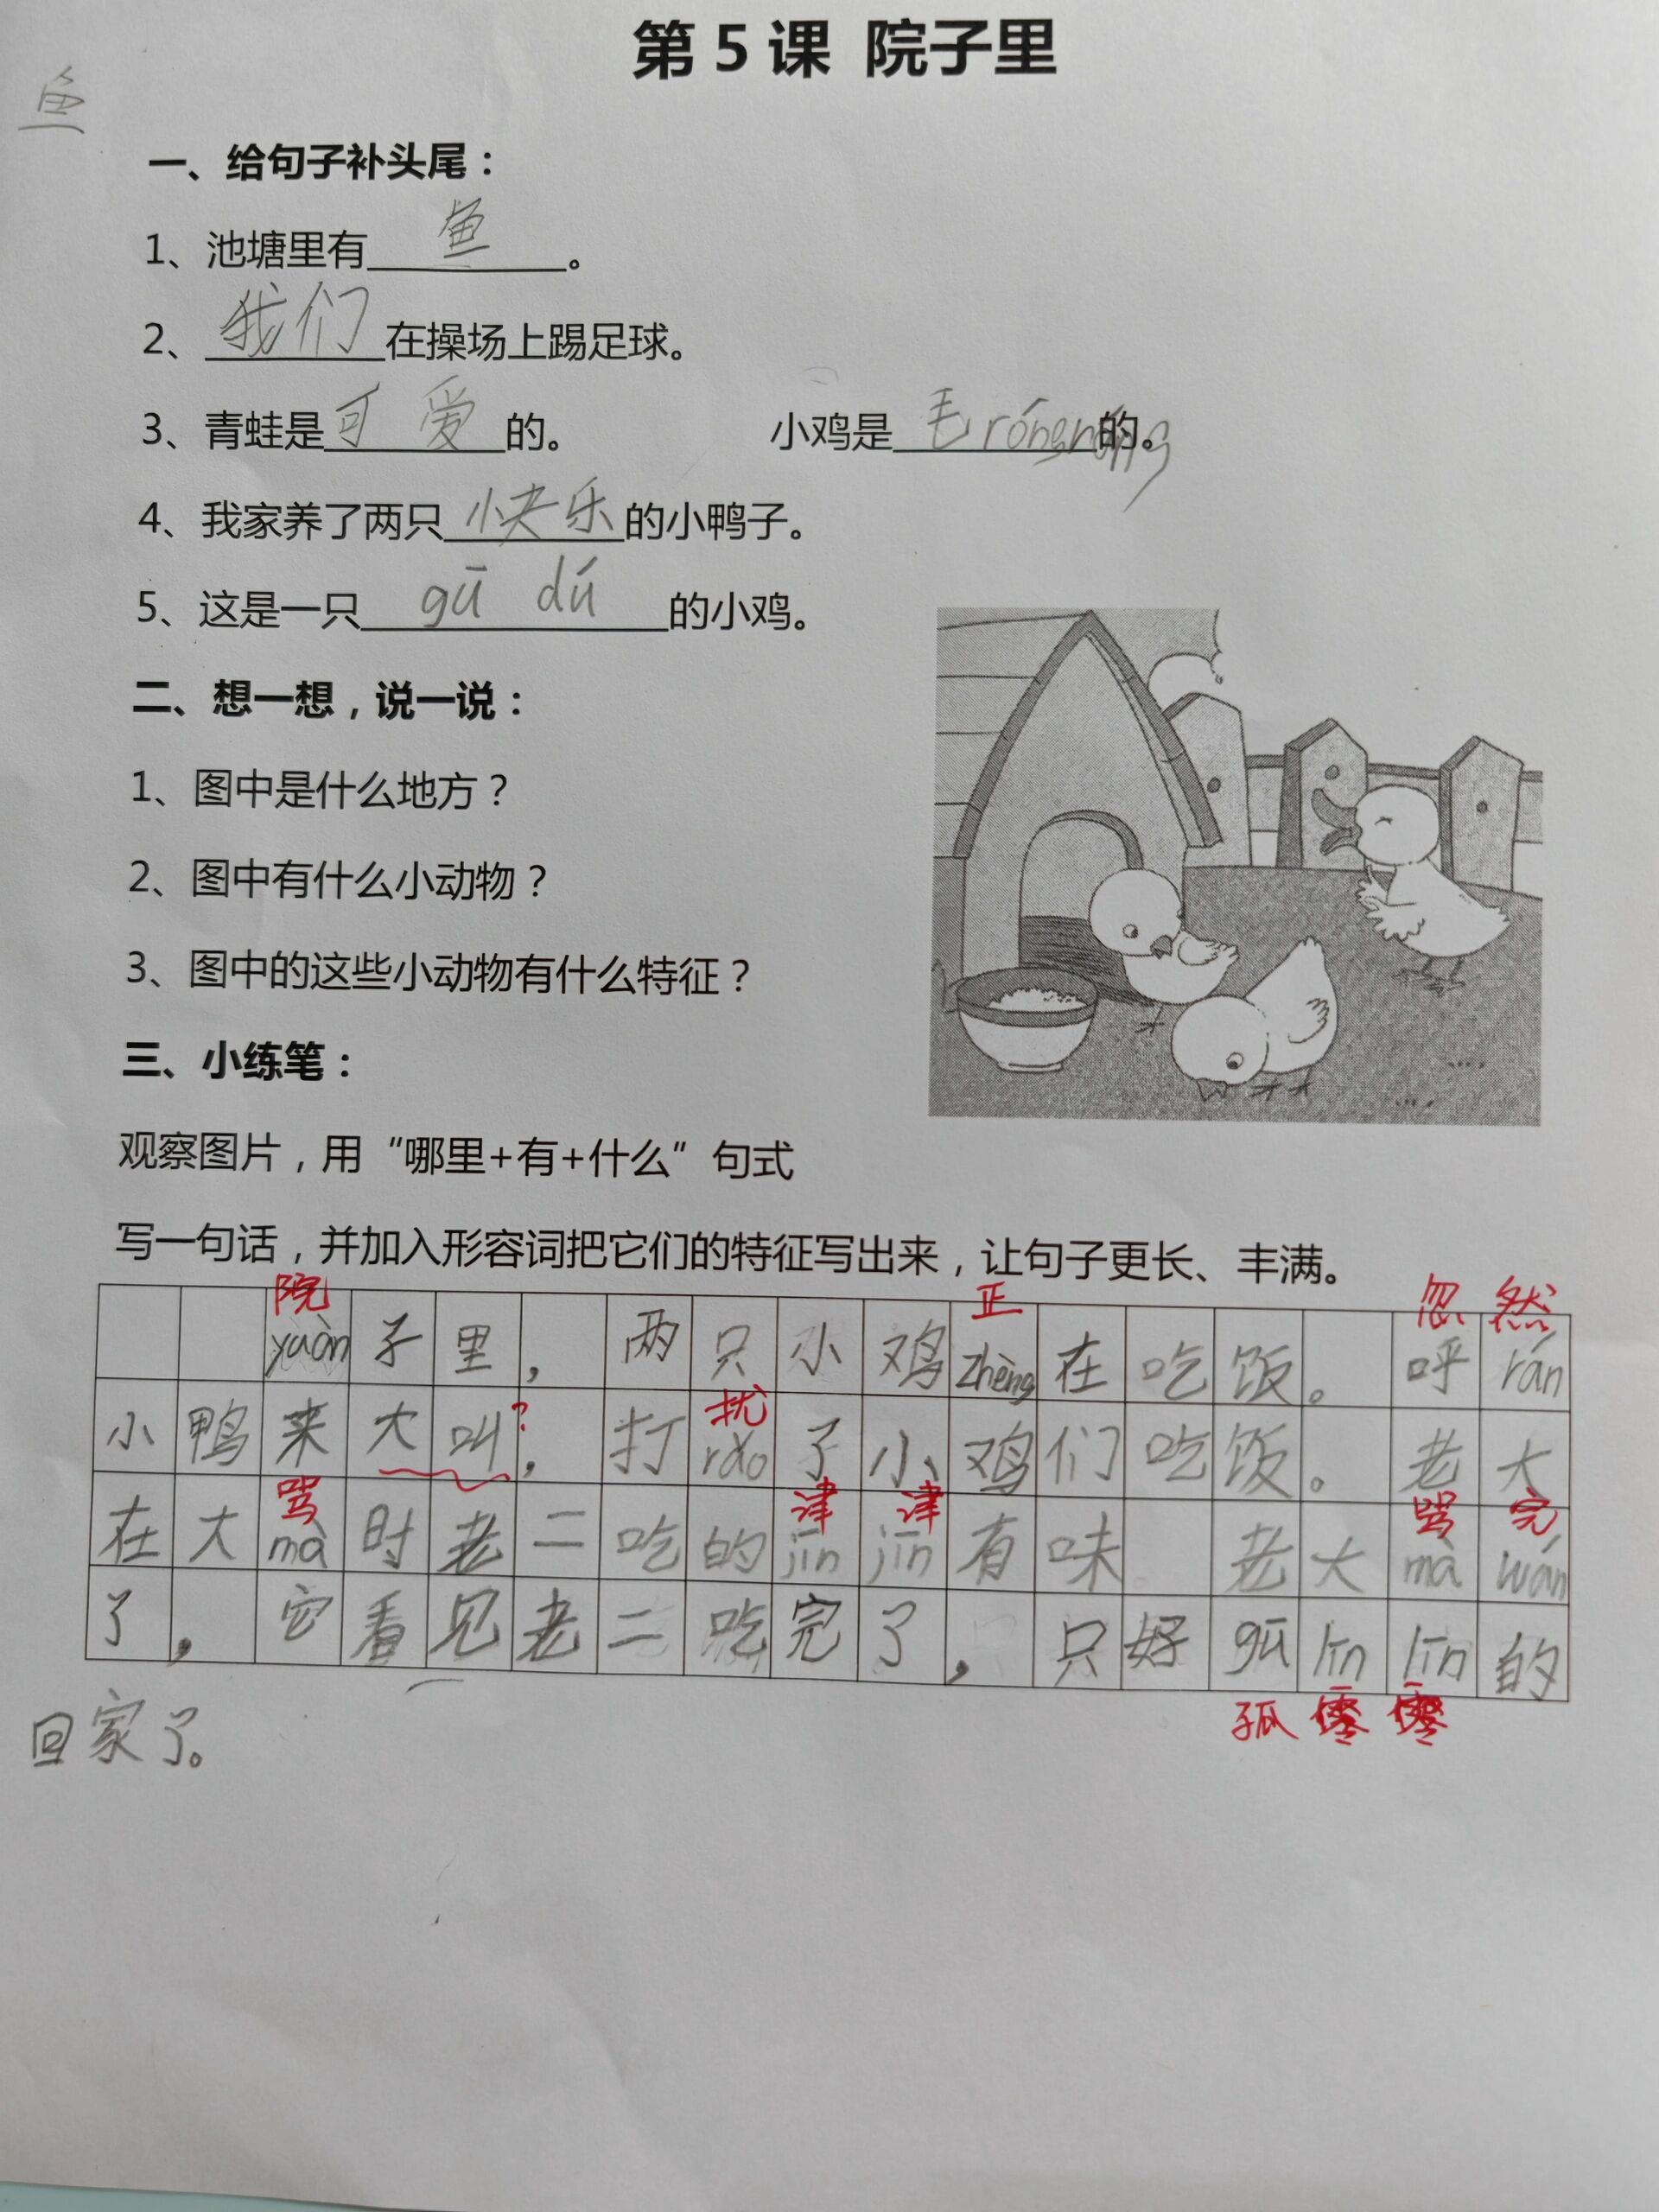 第5课 院子里
鱼
一、给句子补头尾：
1、池塘里有鱼。
2、我们在操场上踢足球。
3、青蛙是可爱的。 小鸡是毛róngróng的。
4、我家养了两只快乐的小鸭子。
5、这是一只gū dú的小鸡。
二、想一想，说一说：
1、图中是什么地方？
2、图中有什么小动物？
3、图中的这些小动物有什么特征？
三、小练笔：
观察图片，用“哪里+有+什么”句式
写一句话，并加入形容词把它们的特征写出来，让句子更长、丰满。
院 正 忽然
yuàn子里，两只小鸡zhèng在吃饭。呼rán
? 扰
小鸭来大叫，打rǎo了小鸡们吃饭。老大
骂 津津 骂完
在大mà时老二吃的jīn jīn有味 老大mà wán
了，它看见老二吃完了，只好gū līn līn的
孤零零
回家了。